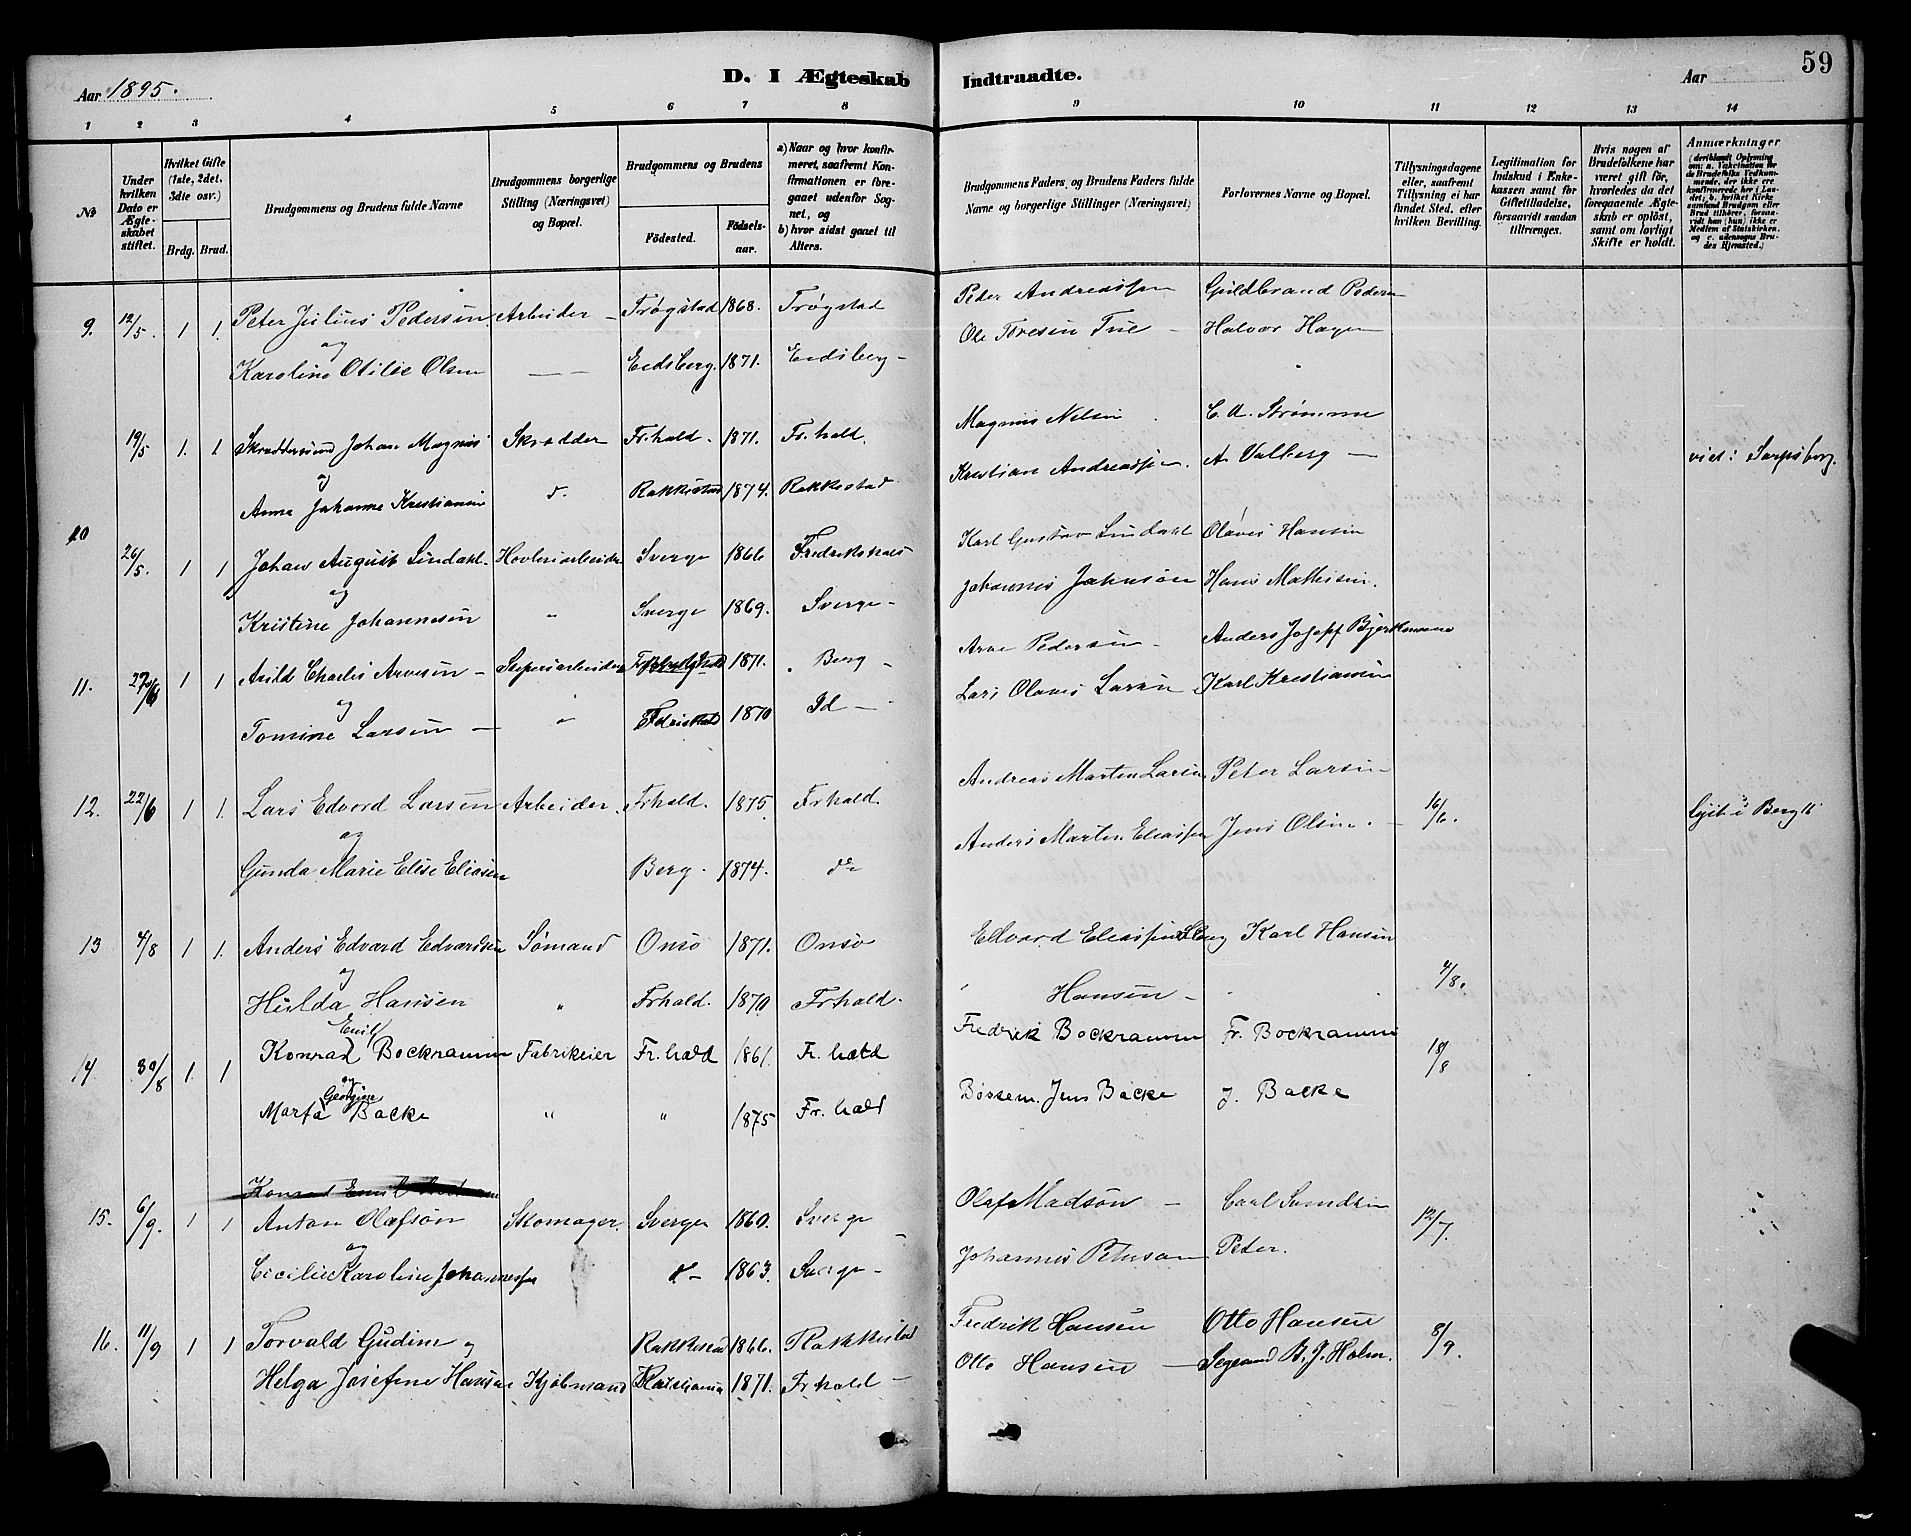 59
Aar 1895.
D. I Ægteskab Indtraadte.
Aar
1 2 3 4 5 6 7 8 9 10 11 12 13 14
No
Under hvilken Dato er Ægteskabet stiftet.
Hvilket Gifte (1ste, 2det, 3die osv.)
Brdg. Brud.
Brudgommens og Brudens fulde Navne
Brudgommens borgerlige Stilling (Næringsvei) og Bopæl.
Brudgommens og Brudens
Födested. Födselsaar.
a) Naar og hvor konfirmeret, saafremt Konfirmationen er foregaaet udenfor Sognet, og
b) hvor sidst gaaet til Alters.
Brudgommens Faders og Brudens Faders fulde Navne og borgerlige Stillinger (Næringsvei)
Forlovernes Navne og Bopæl.
Tillysningsdagene eller, saafremt Tillysning ei har fundet Sted, efter hvilken Bevilling.
Legitimation for Indskud i Enkekassen samt for Giftetilladelse, forsaavidt saadan tiltrænges.
Hvis nogen af Brudefolkene har været gift för, hvorledes da det foregaaende Ægteskab er oplöst, samt om lovligt Skifte er holdt.
Anmærkninger
9. 12/5. 1 1. Peter Julius Pedersen Arbeider - Trøgstad 1868. Trøgstad Peder Andreassen Guldbrand Pedersen
og
Karoline Otilie Olsen Eidsberg. 1871. Eidsberg - Ole Toresen Tue - Halvor Hagen
19/5 1. 1 Skræddersvend Johan Magnus Skrædder Fr.hald. 1871. Fr.hald. Magnus Nelsen C. A. Strømme
og
Anna Johanne Kristiansen d. Rakkestad 1874. Rakkestad Kristian Andreassen. A. Valberg - viet i Sarpsborg.
10 26/5. 1 1 Johan August Lindahl. Høvleriarbeider Sverge 1866 Fredrikshald Karl Gustav Lindahl Olavus Hansen
og
Kristine Johannesen " Sverge 1869. Sverge - Johannes Johnson Hans Mathisen.
11. 27/6 1 1 Arild Charles Arvesen - 1871. Berg - Arve Pedersen - Anders Josepf
og
Tomine Larsen - " 1870 Id - Lars Olaves Larsen Karl Kristiansen
12. 22/6 1 1. Lars Edvard Larsen Arbeider. Frhald. 1875 Frhald. Andreas Marten Larsen Peter Larsen 16/6. lyst i Berg
og
Gunda Marie Elise Eliasen Berg. 1874. do Anders Marten Eliassen Jens Olsen. -
13 4/8 1 1. Anders Edvard Edvardsen Sømand Onsø 1871. Onsø Edvard Eliassen Karl Hansen 4/8.
og
Hulda Hansen " Frhald. 1870 Frhald. Hansen -
14 30/8 1. 1 Konrad Emil Bockramm Fabrikeier Fr. hald 1861. Fr. hald Fredrik Bockramm Fr. Bockramm 18/8
og
Marta Georgine Backe " " 1875 Fr. hald Jens Backe J. Backe
Konrad Emil
15. 6/9. 1 1 Anton Olafsön Skomager. Sverge 1860. Sverge Olaf Madsön - Carl Svendsen 12/7.
og
Cicilie Karoline Johannessen d - 1863. Sverge - Johannes Peterson Peter.
16. 11/9 1 1 Torvald Gudim og Rakkestad 1866. Rakkestad Fredrik Hansen Otto Hansen 8/9.
Helga Josefine Hansen Kjøbmand Kristiania 1871. Frhald - Otto Hansen - B. J. Holm.